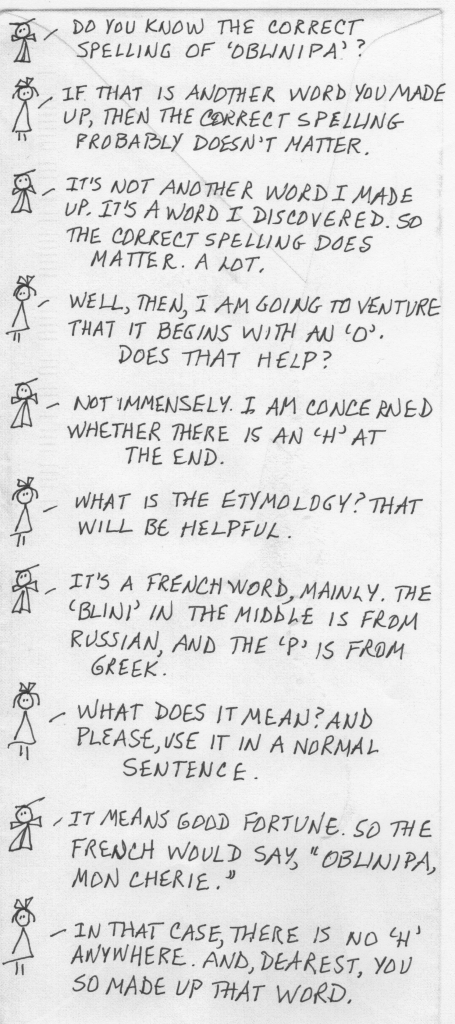 DO YOU KNOW THE CORRECT
SPELLING OF 'OBLINIPA'?
IF THAT IS ANOTHER WORD YOU MADE
UP, THEN THE CORRECT SPELLING
PROBABLY DOESN'T MATTER.
IT'S NOT ANOTHER WORD I MADE
UP. IT'S A WORD I DISCOVERED. SO
THE CORRECT SPELLING DOES
MATTER. A LOT.
WELL, THEN, I AM GOING TO VENTURE
THAT IT BEGINS WITH AN 'O'.
DOES THAT HELP?
NOT IMMENSELY. I AM CONCERNED
WHETHER THERE IS AN 'H' AT
THE END.
WHAT IS THE ETYMOLOGY? THAT
WILL BE HELPFUL.
IT'S A FRENCH WORD, MAINLY. THE
'BLINI' IN THE MIDDLE IS FROM
RUSSIAN, AND THE 'P' IS FROM
GREEK.
WHAT DOES IT MEAN? AND
PLEASE, USE IT IN A NORMAL
SENTENCE.
IT MEANS GOOD FORTUNE. SO THE
FRENCH WOULD SAY, "OBLINIPA,
MON CHERIE."
IN THAT CASE, THERE IS NO 'H'
ANYWHERE. AND, DEAREST, YOU
SO MADE UP THAT WORD.